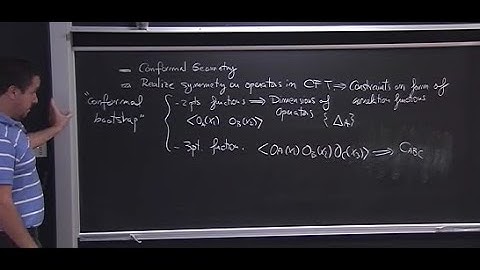 - Conformal Geometry
- Realize Symmetry on operators in CFT ⇒ Constraints on form of correlation functions
"Conformal bootstrap"
- 2 pts functions ⇒ Dimensions of operators {Δ_A}
<O_A(x_1) O_B(x_2)>
- 3 pt. function. <O_A(x_1) O_B(x_2) O_C(x_3)> ⇒ C_ABC